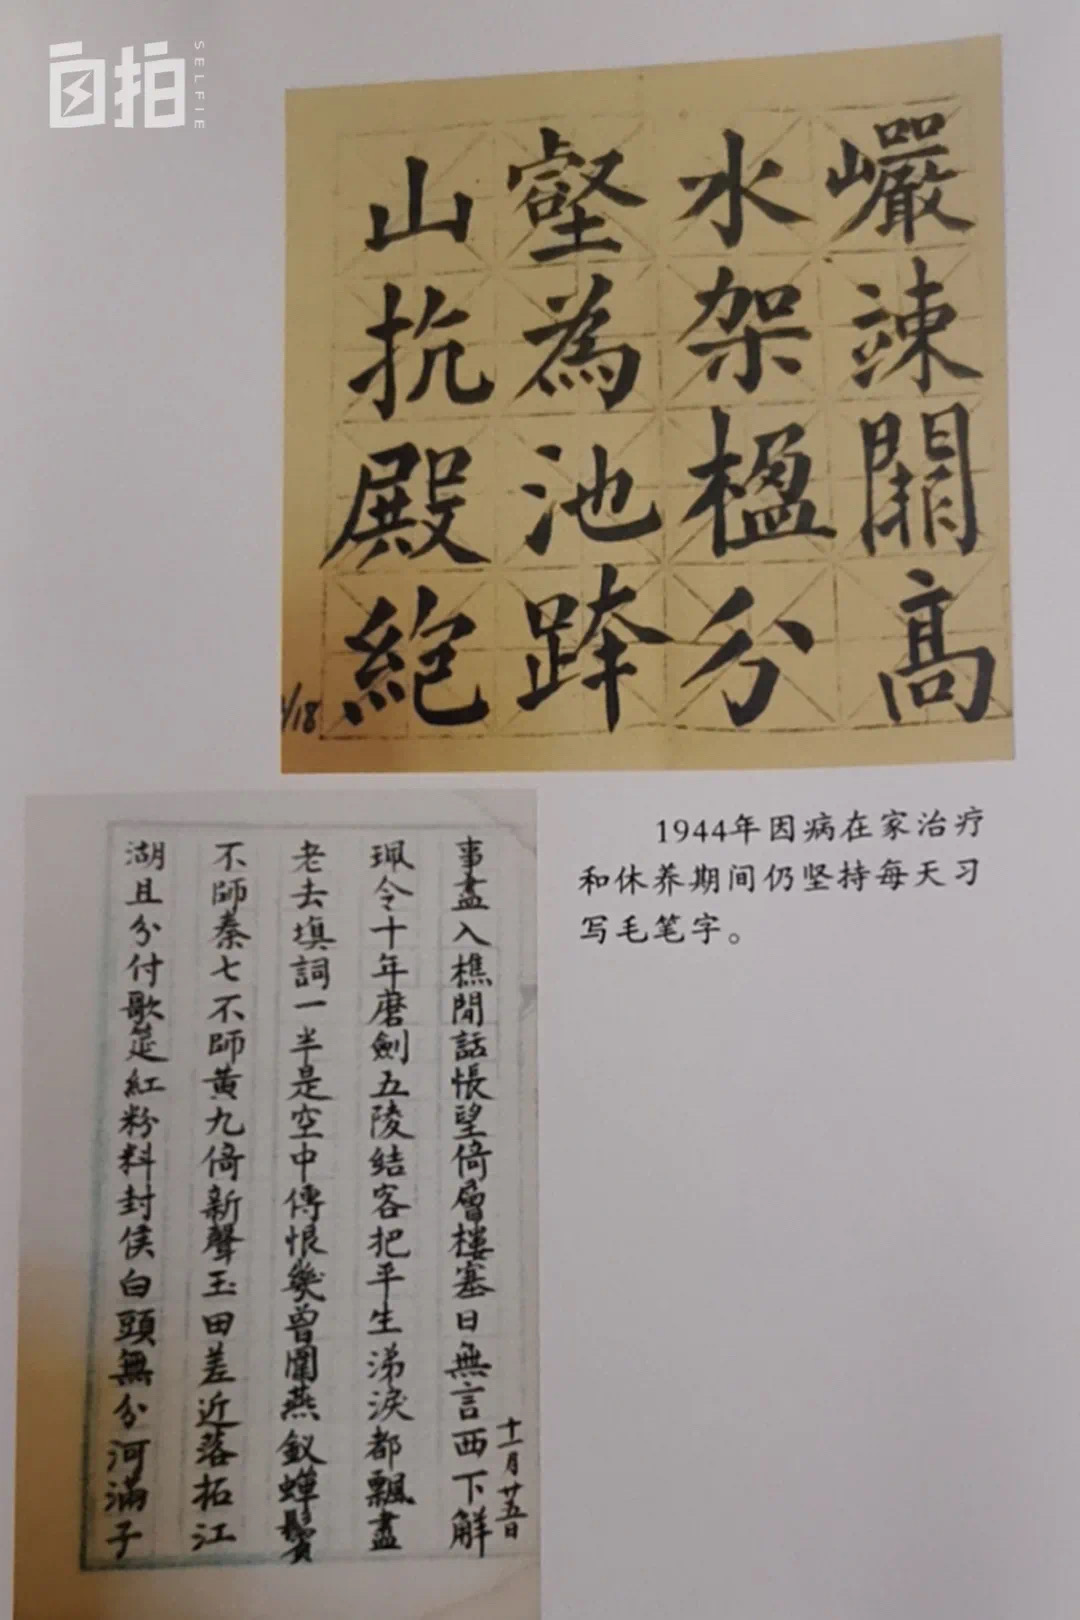 自拍
SELFIE
山抗殿絶
壑為池跨
水架楹分
巗竦闕高
/18
1944年因病在家治疗
和休养期间仍坚持每天习
写毛笔字。
十一月廿五日
事盡入樵閒話悵望倚層樓塞日無言西下解
珮令十年磨劍五陵結客把平生涕淚都飄盡
老去填詞一半是空中傳恨幾曾圍燕釵蟬鬢
不師秦七不師黃九倚新聲玉田差近落拓江
湖且分付歌筵紅粉料封侯白頭無分河滿子